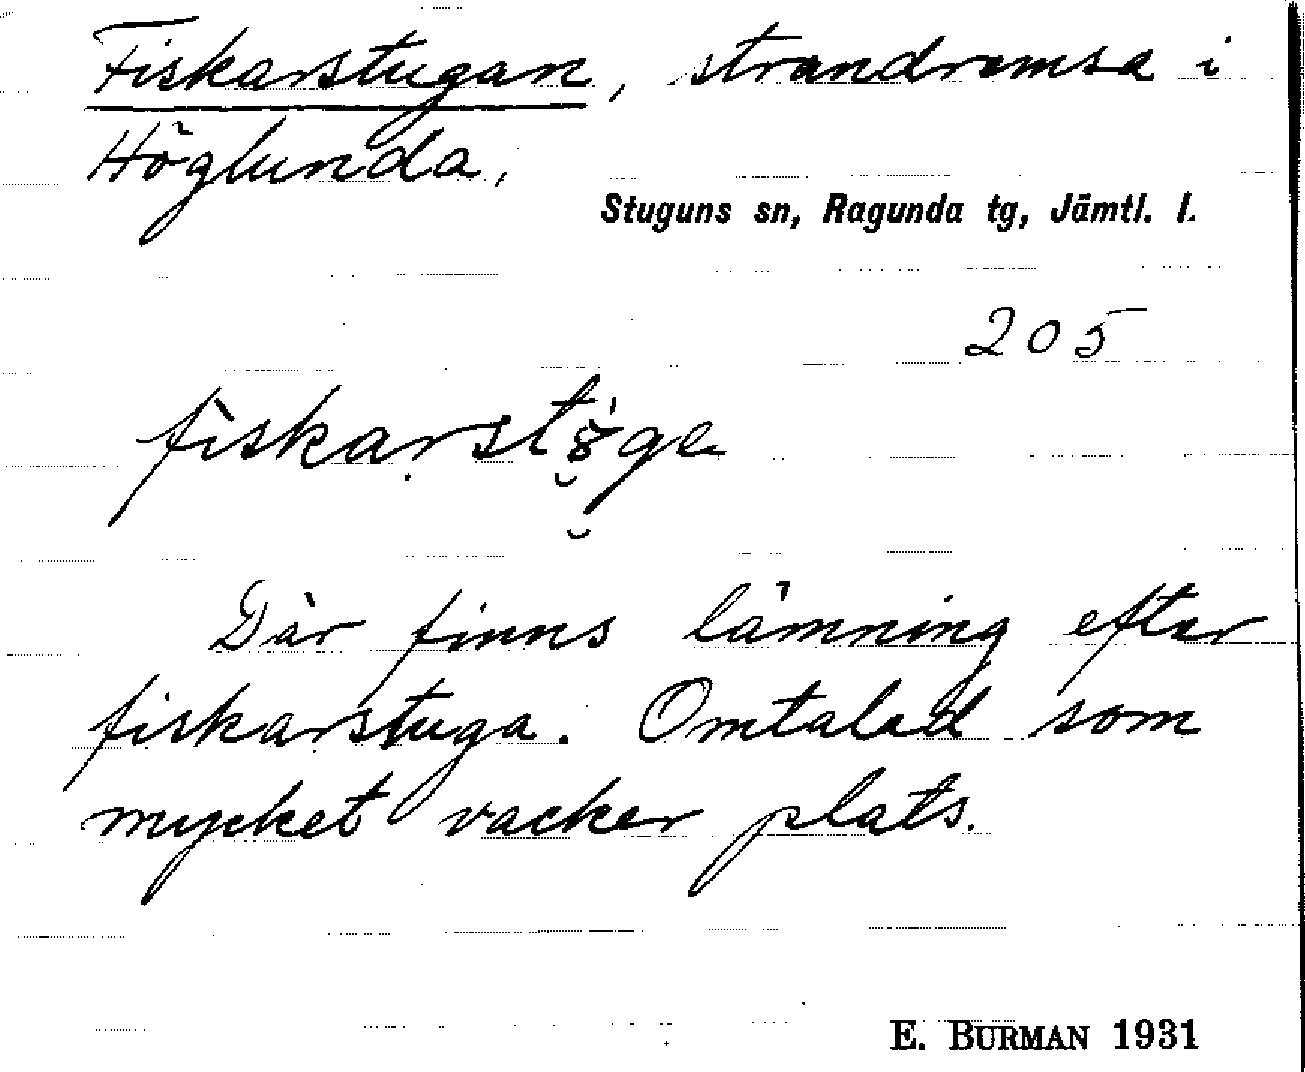 Fiskarstugan, strandremsa i
Höglunda,
Stuguns sn, Ragunda tg, Jämtl. l.
205
Där finns lämning efter
fiskarstuga. Omtalad som
mycket vacker plats.
E. BURMAN 1931